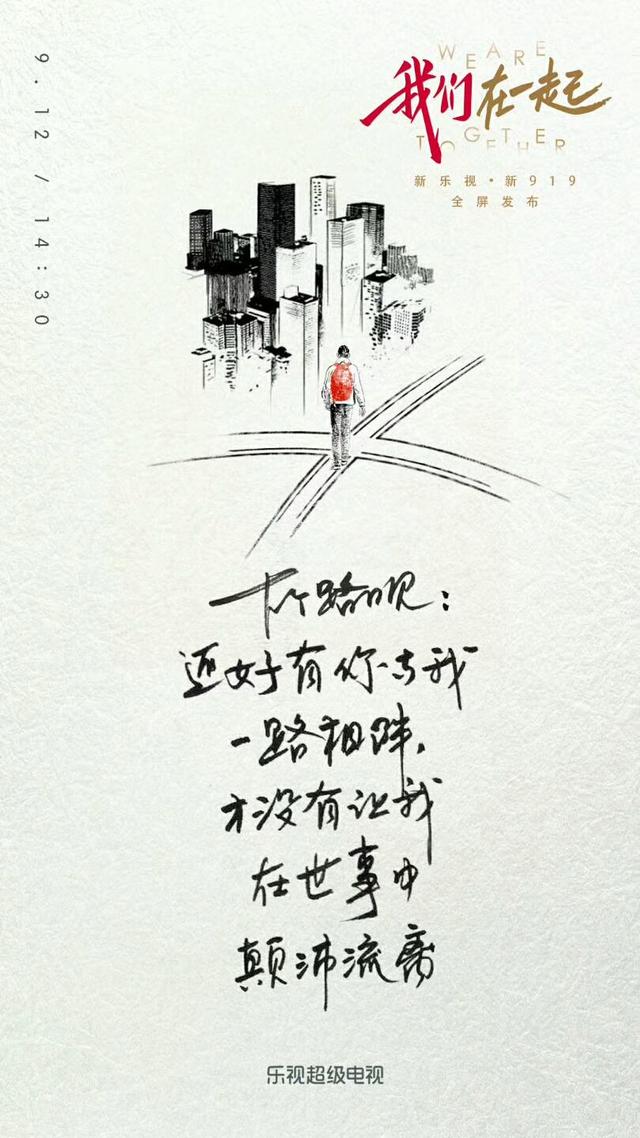 9.12/14:30
WE ARE
我们在一起
TOGETHER
新乐视·新919
全屏发布
下个路口见：
还好有你与我
一路相伴，
才没有让我
在世事中
颠沛流离
乐视超级电视